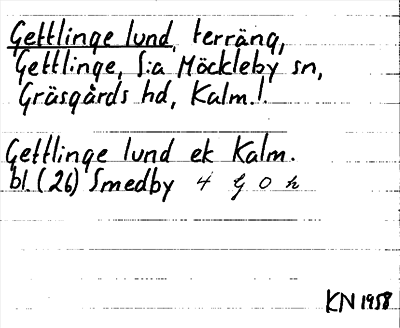 Gettlinge lund, terräng,
Gettlinge, S:a Möckleby sn,
Gräsgårds hd, Kalm.l.
Gettlinge lund ek Kalm.
bl (26) Smedby 4 G o h
KN 1958